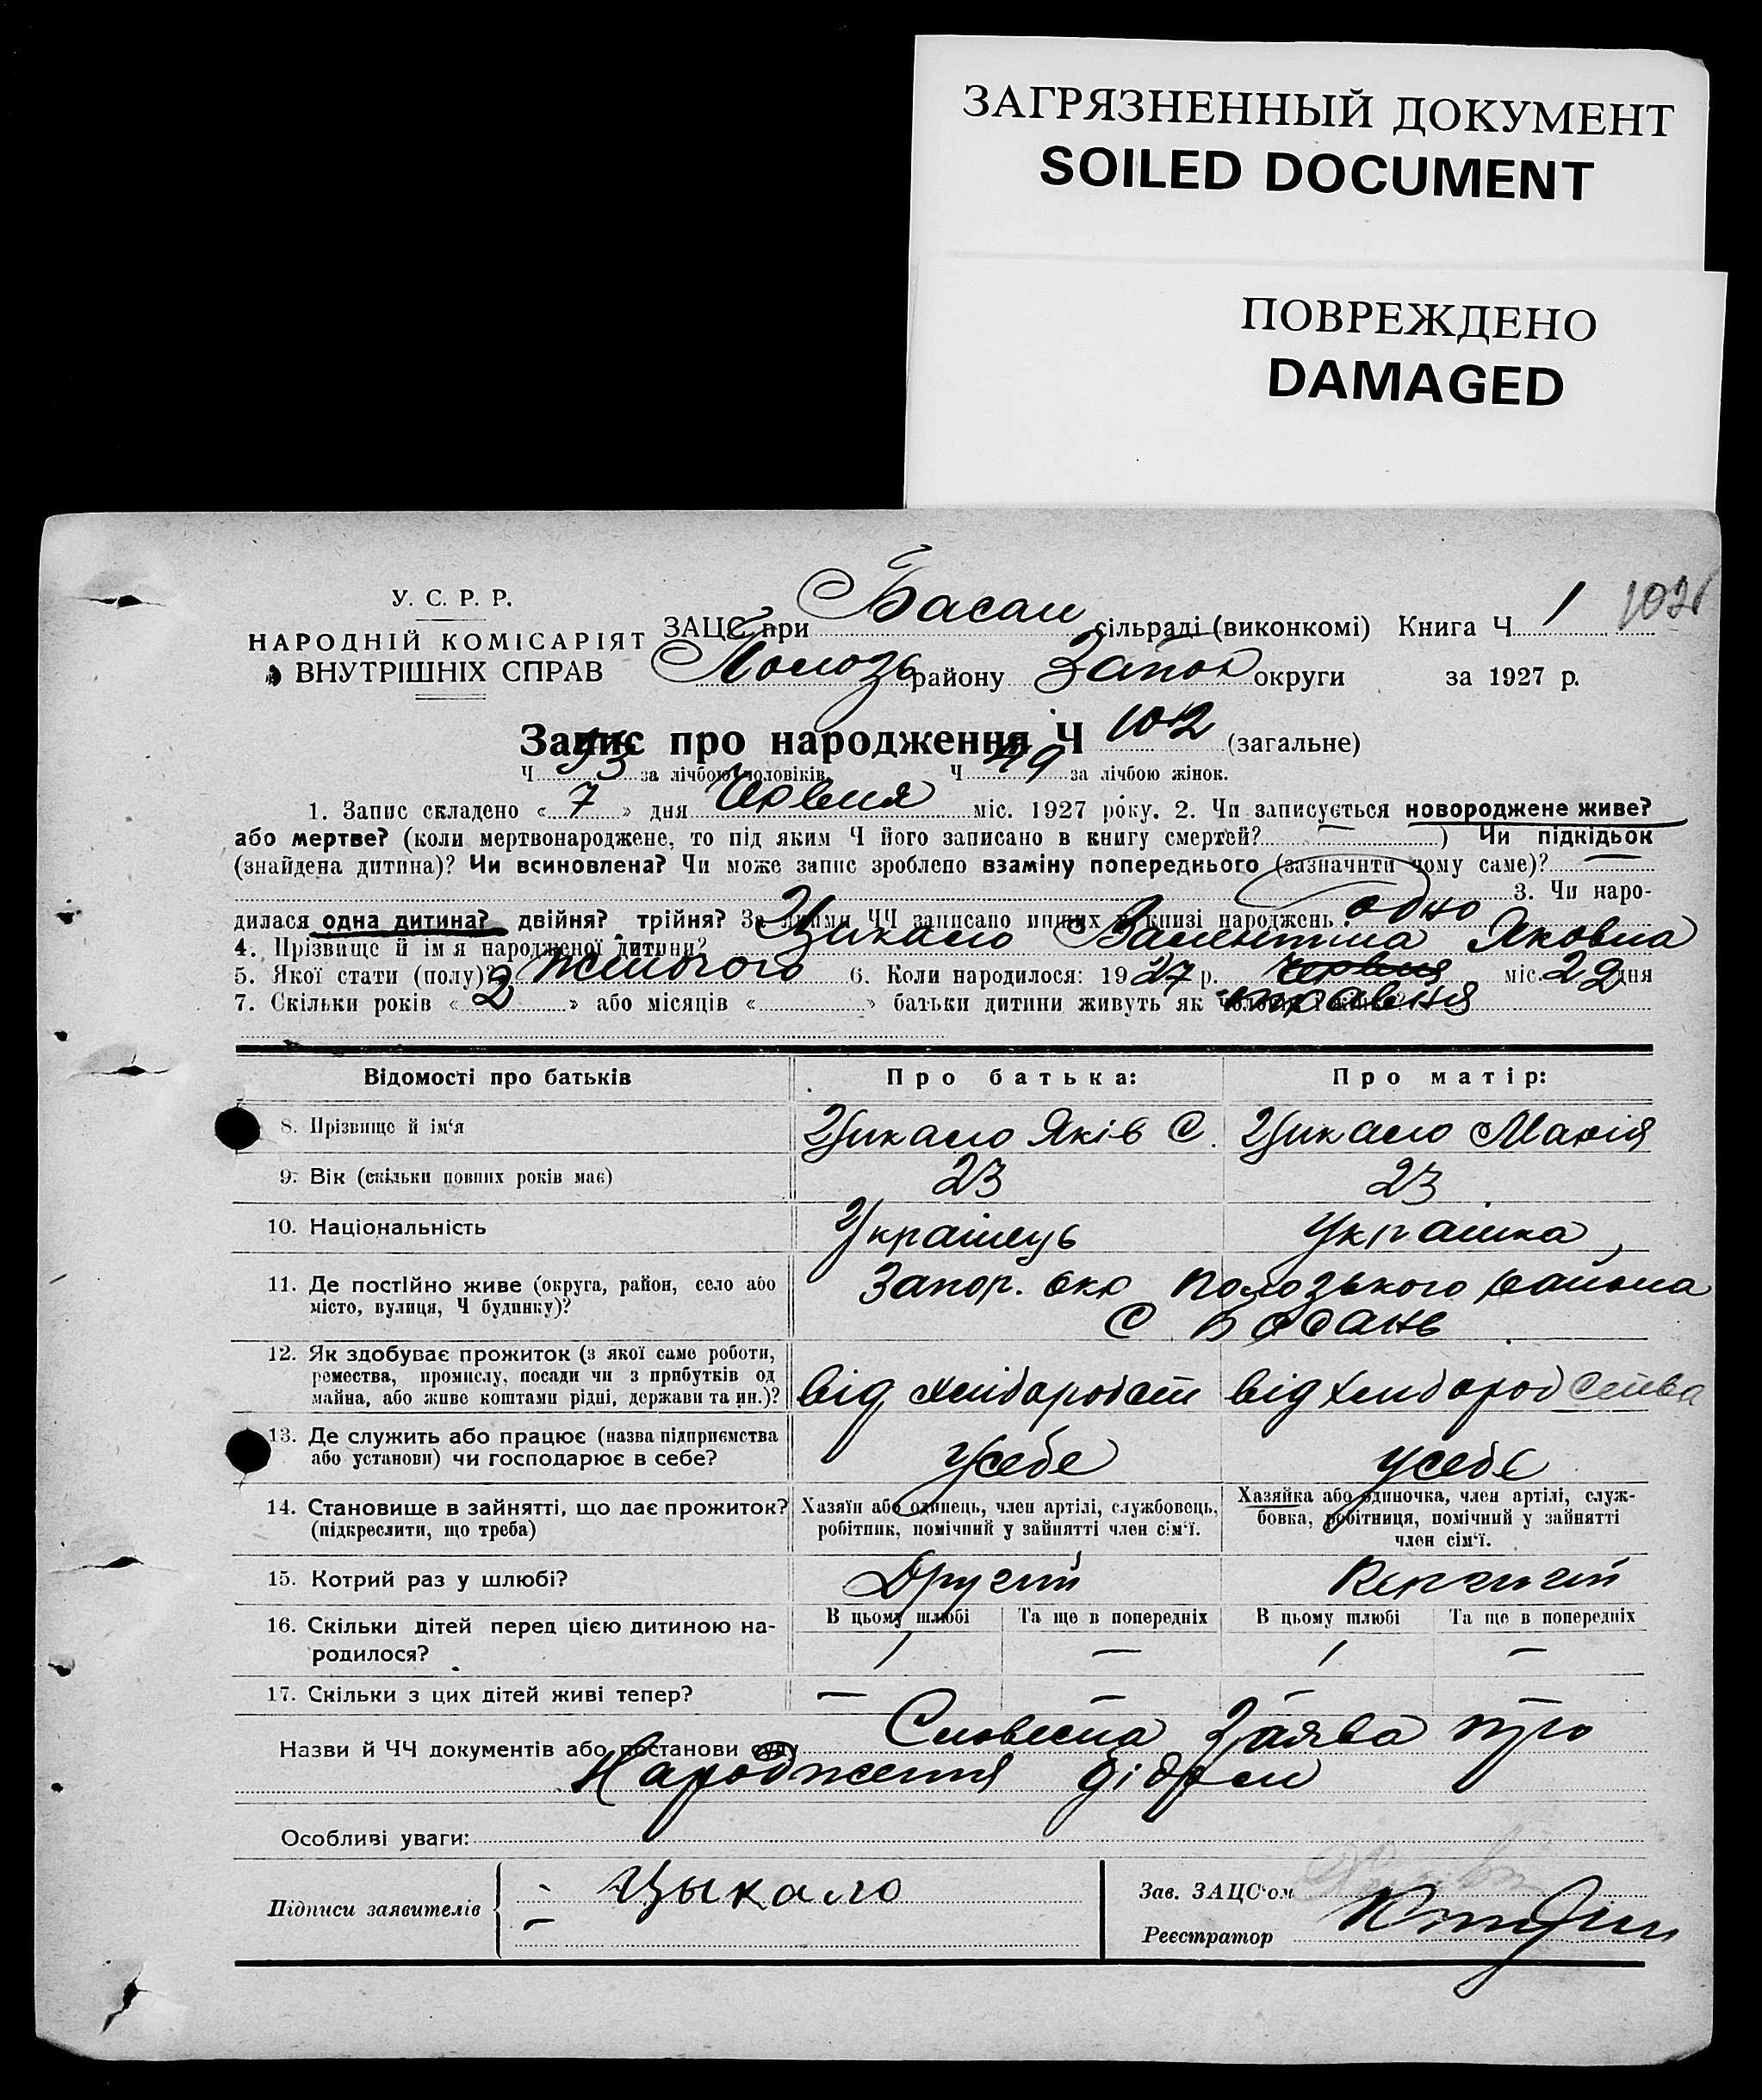 ЗАГРЯЗНЕННЫЙ ДОКУМЕНТ
SOILED DOCUMENT
ПОВРЕЖДЕНО
DAMAGED
У. С. Р. Р.
НАРОДНІЙ КОМІСАРІЯТ
ВНУТРІШНІХ СПРАВ
ЗАЦС при Басан сільраді (виконкомі) Книга Ч 1
Полозь району Запор округи за 1927 р.
Запис про народження Ч 102 (загальне)
Ч 53 за лічбою чоловіків. Ч 49 за лічбою жінок.
1. Запис складено « 7 » дня Червня міс. 1927 року. 2. Чи записується новороджене живе?
або мертве? (коли мертвонароджене, то під яким Ч його записано в книгу смертей? ) Чи підкідьок
(знайдена дитина)? Чи всиновлена? Чи може запис зроблено взаміну попереднього (зазначити чому саме)?
3. Чи наро-
дилася одна дитина? двійня? трійня? За якими ЧЧ записано инших в книзі народжень одно
4. Прізвище й ім'я народженої дитини? Цикало Валентина Яковна
5. Якої стати (полу)? жиночого 6. Коли народилося: 1927 р. червня міс. 22 дня
7. Скільки років « 2 » або місяців « » батьки дитини живуть як чоловік і жінка? травня
Відомості про батьків Про батька: Про матір:
8. Прізвище й ім'я Цикало Яків С. Цикало Марія
9. Вік (скільки повних років має) 23 23
10. Національність Українець Українка
11. Де постійно живе (округа, район, село або Запор. окр Полозького района
місто, вулиця, Ч будинку)? С Басань
12. Як здобуває прожиток (з якої саме роботи,
ремества, промислу, посади чи з прибутків од
майна, або живе коштами рідні, держави та ин.)? від хлібороб від хлібороб ства
13. Де служить або працює (назва підприємства
або установи) чи господарює в себе? усебе усебе
14. Становище в зайнятті, що дає прожиток? Хазяїн або одинець, член артілі, службовець, Хазяйка або одиночка, член артілі, служ-
(підкреслити, що треба) робітник, помічний у зайнятті член сім'ї. бовка, робітниця, помічний у зайнятті
член сім'ї.
15. Котрий раз у шлюбі? Другий
16. Скільки дітей перед цією дитиною на- В цьому шлюбі Та ще в попередніх В цьому шлюбі Та ще в попередніх
родилося? 1 — 1 —
17. Скільки з цих дітей живі тепер? — — — —
Назви й ЧЧ документів або постанови суду Словесна Заява про
Народження дідом
Особливі уваги:
Підписи заявителів Цыкало
Зав. ЗАЦС'ом
Реєстратор